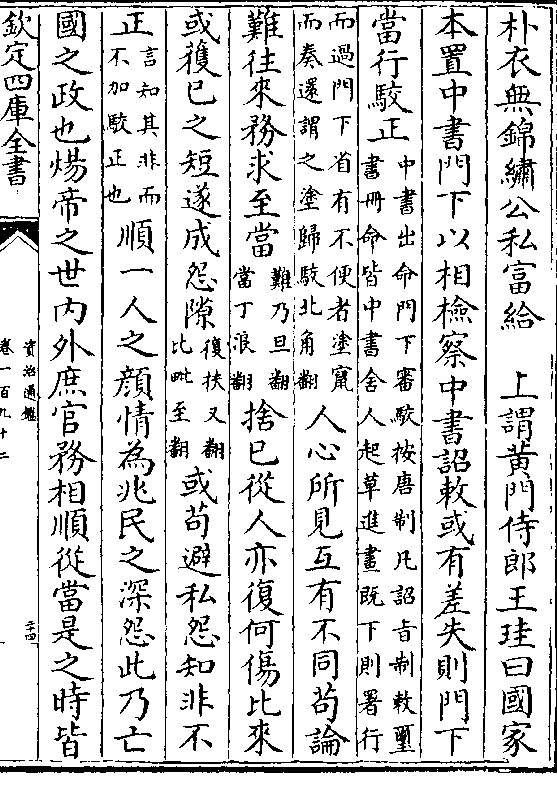 朴衣無錦繡公私富給　上謂黃門侍郎王珪曰國家
本置中書門下以相檢察中書詔敕或有差失則門下
當行駮正
中書出命門下審駮按唐制凡詔旨制敕璽
書冊命皆中書舍人起草進畫既下則署行
而過門下省有不便者塗竄
而奏還謂之塗歸駮北角翻
人心所見互有不同苟論
難往來務求至當
難乃旦翻
當丁浪翻
捨已從人亦復何傷比來
或護已之短遂成怨隙
復扶又翻
比毗至翻
或苟避私怨知非不
正
言知其非而
不加駮正也
順一人之顔情為兆民之深怨此乃亡
國之政也煬帝之世内外庶官務相順從當是之時皆
欽定四庫全書
資治通鑑
卷一百九十二
二十四